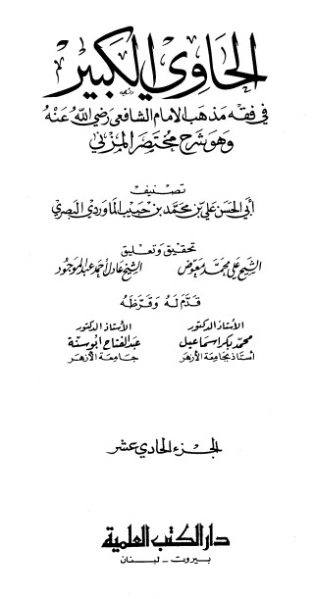 الحاوي الكبير
في فقه مذهب الإمام الشافعي رضي الله عنه
وهو شرح مختصر المزني
تصنيف
أبي الحسن علي بن محمد بن حبيب الماوردي البصري
تحقيق وتعليق
الشيخ علي محمد معوض
الشيخ عادل أحمد عبد الموجود
قدم له وقرظه
الأستاذ الدكتور
محمد بكر إسماعيل
أستاذ بجامعة الأزهر
الأستاذ الدكتور
عبد الفتاح أبو سنة
جامعة الأزهر
الجزء الحادي عشر
دار الكتب العلمية
بيروت - لبنان